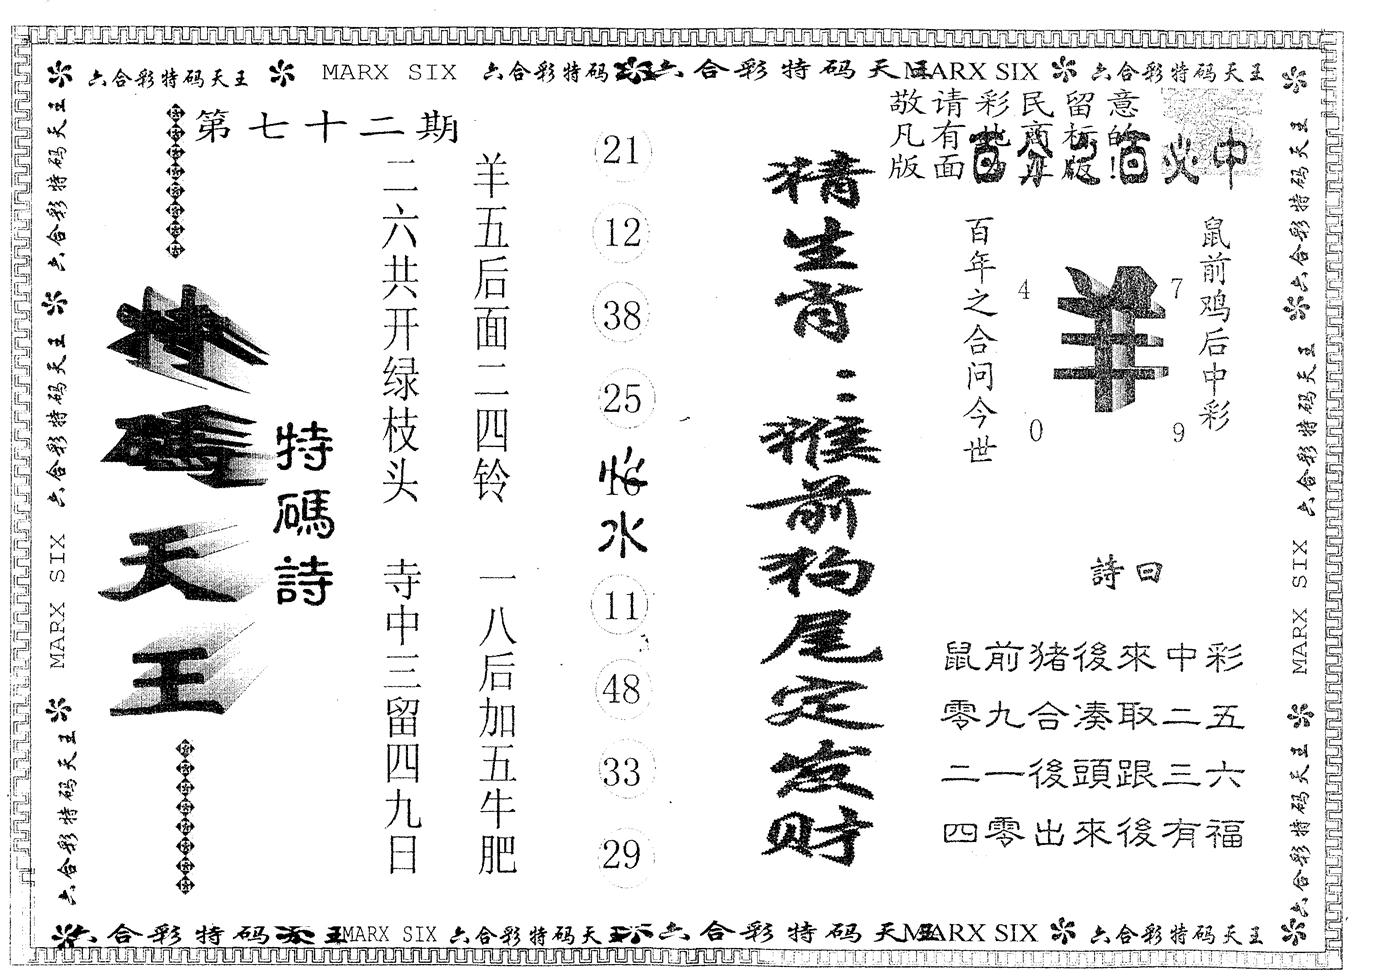 六合彩特码天王 MARX SIX 六合彩特码 六合彩特码天王 MARX SIX 六合彩特码天王
第七十二期
敬请彩民留意
凡有 商标的
版面 正版!
百分之百必中
鼠前鸡后中彩
羊
4 7
0 9
百年之合问今世
詩曰
鼠前猪後來中彩
零九合凑取二五
二一後頭跟三六
四零出來後有福
精生肖：猴前狗尾定发财
21
12
38
25
16
水
11
48
33
29
羊五后面二四铃 一八后加五牛肥
二六共开绿枝头 寺中三留四九日
特碼詩
特碼天王
六合彩特码天王 六合彩特码天王 MARX SIX 六合彩特码天王
六合彩特码天王 六合彩特码天王 MARX SIX 六合彩特码天王
六合彩特码天王 MARX SIX 六合彩特码天王 六合彩特码天王 MARX SIX 六合彩特码天王